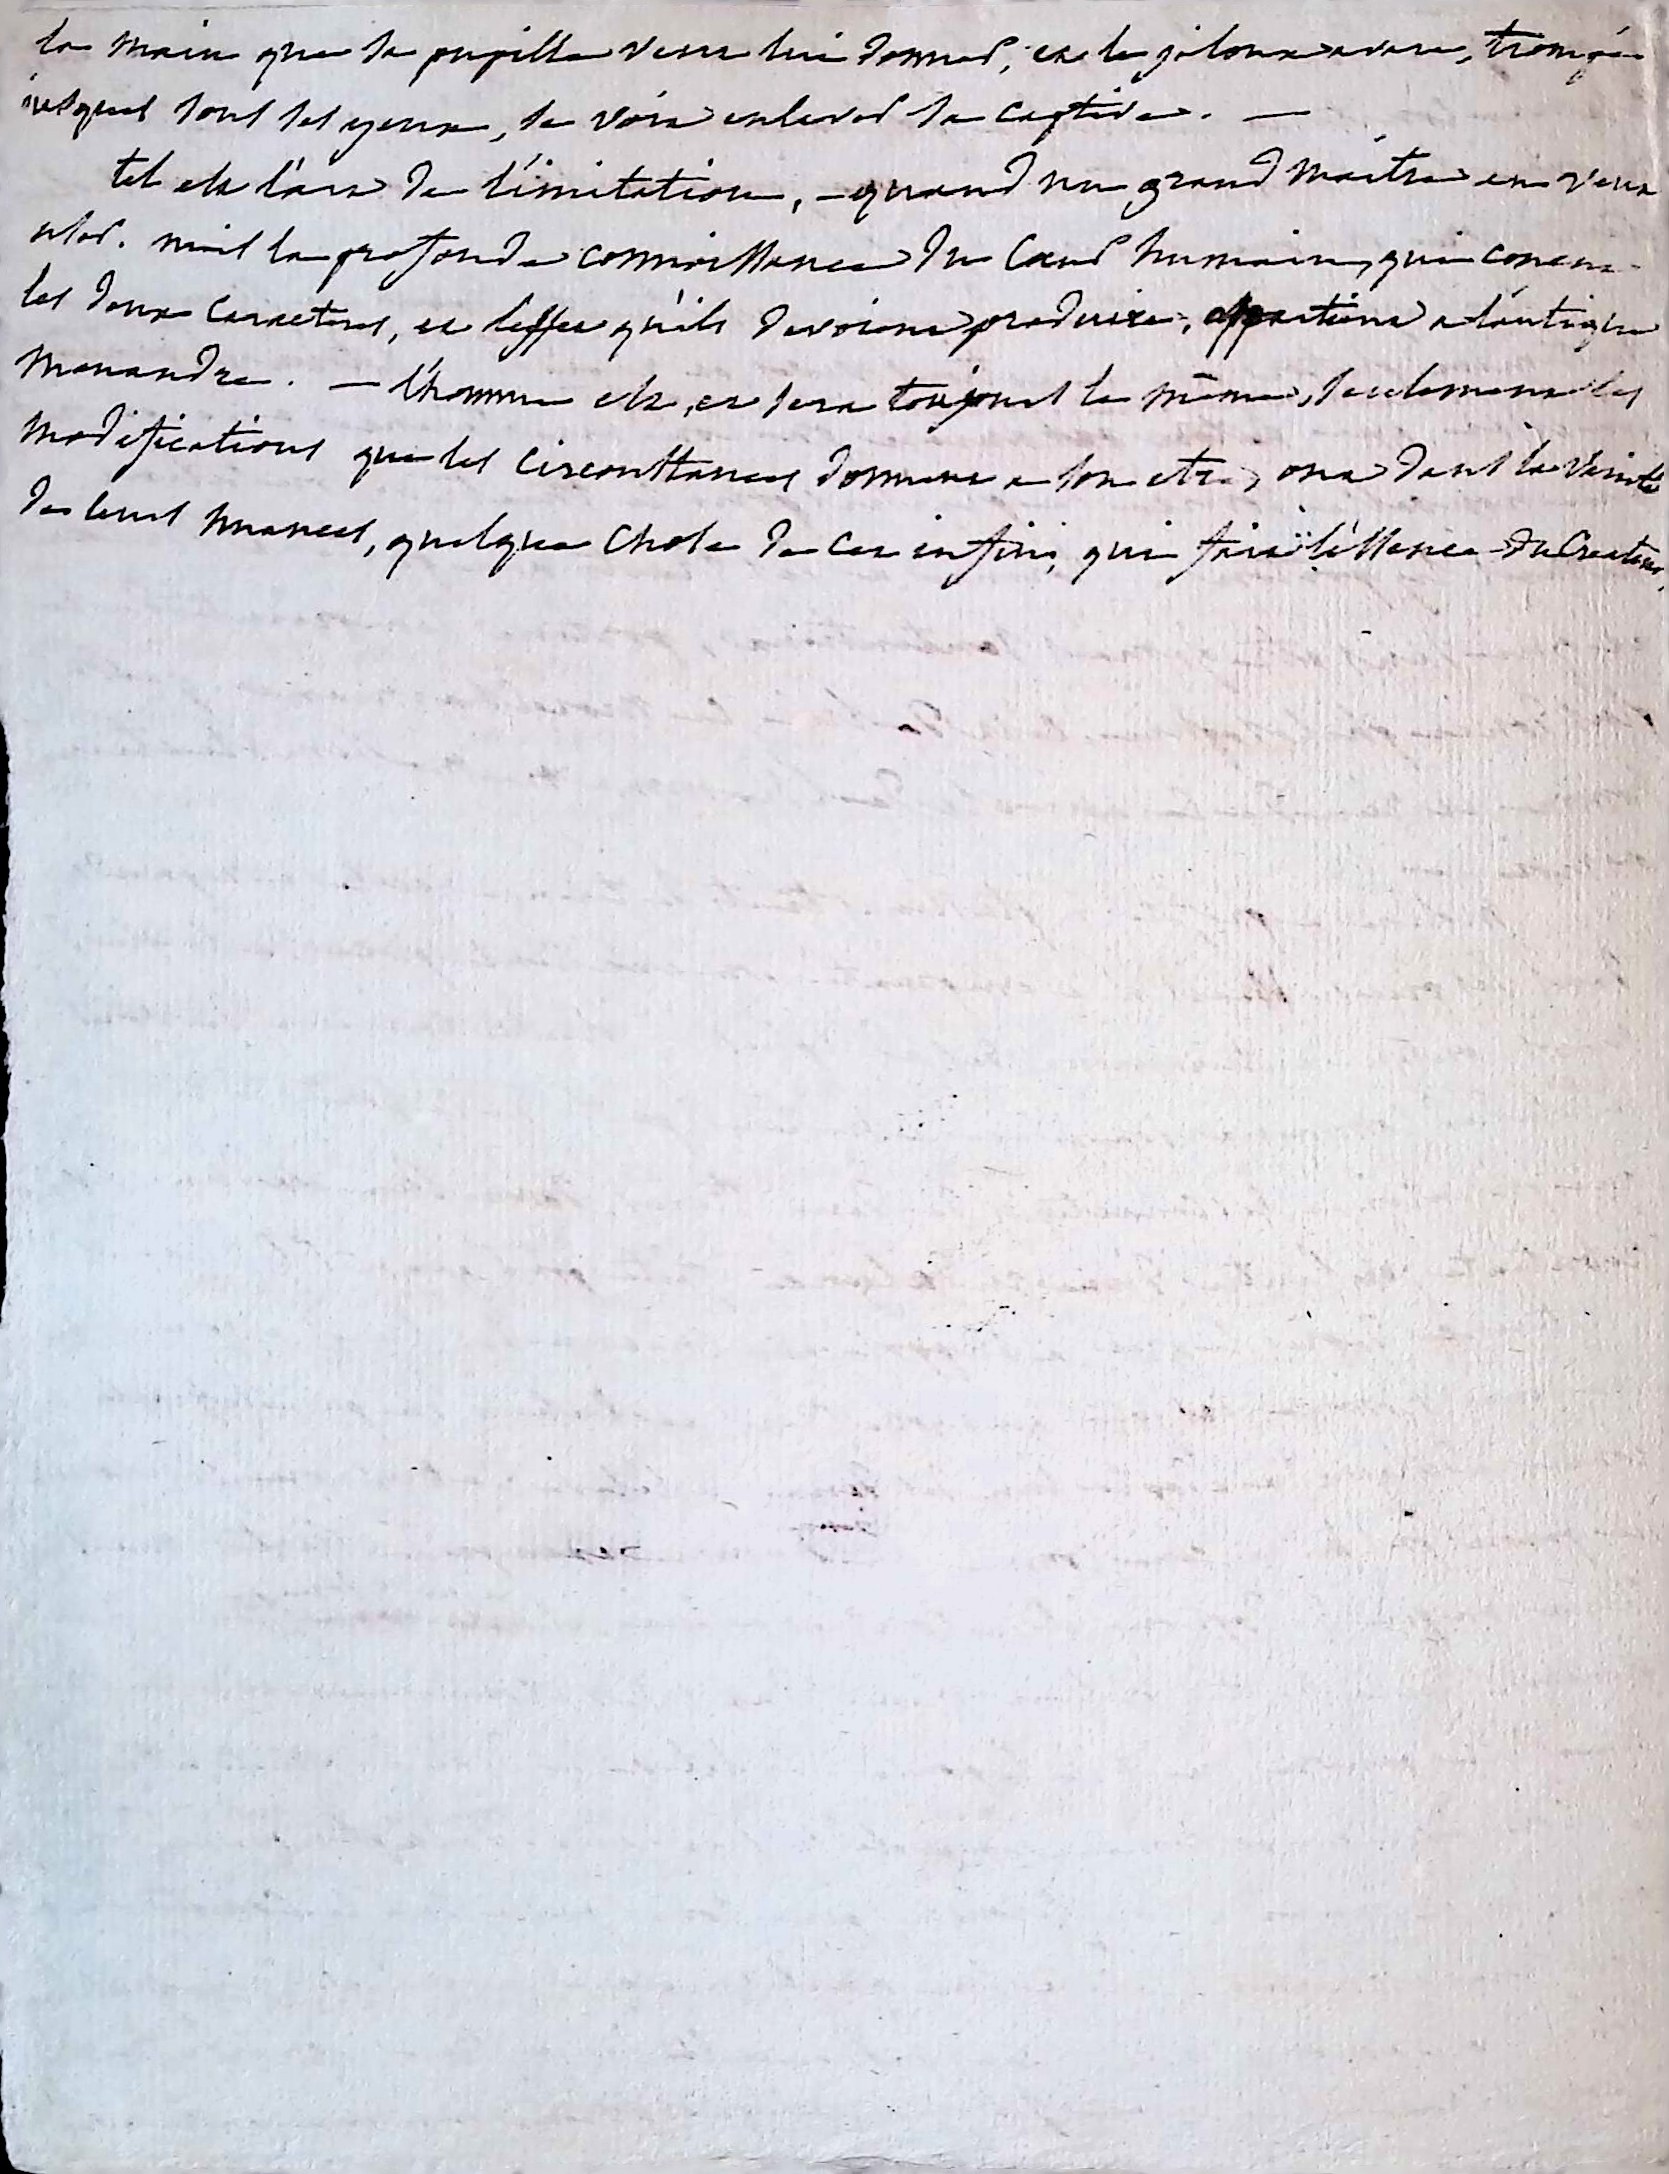 la main que sa pupille veut lui donner, et le jaloux avare, trompé
jusques sous ses yeux, se voit enlever sa captive. —
tel est l'art de l'imitation, – quand un grand maitre en veut
user. mais la profonde connoissance du cœur humain, qui conçut
les deux carracteres, et l'effet qu'ils devoient produire, appartient a l'antique
menandre. — l'homme est, et sera toujours le même, seulement les
modifications que les circonstances donnent a son etre, ont dans la varieté
de leurs nuances, quelque chose de cet infini, qui fait l'essence du Createur,